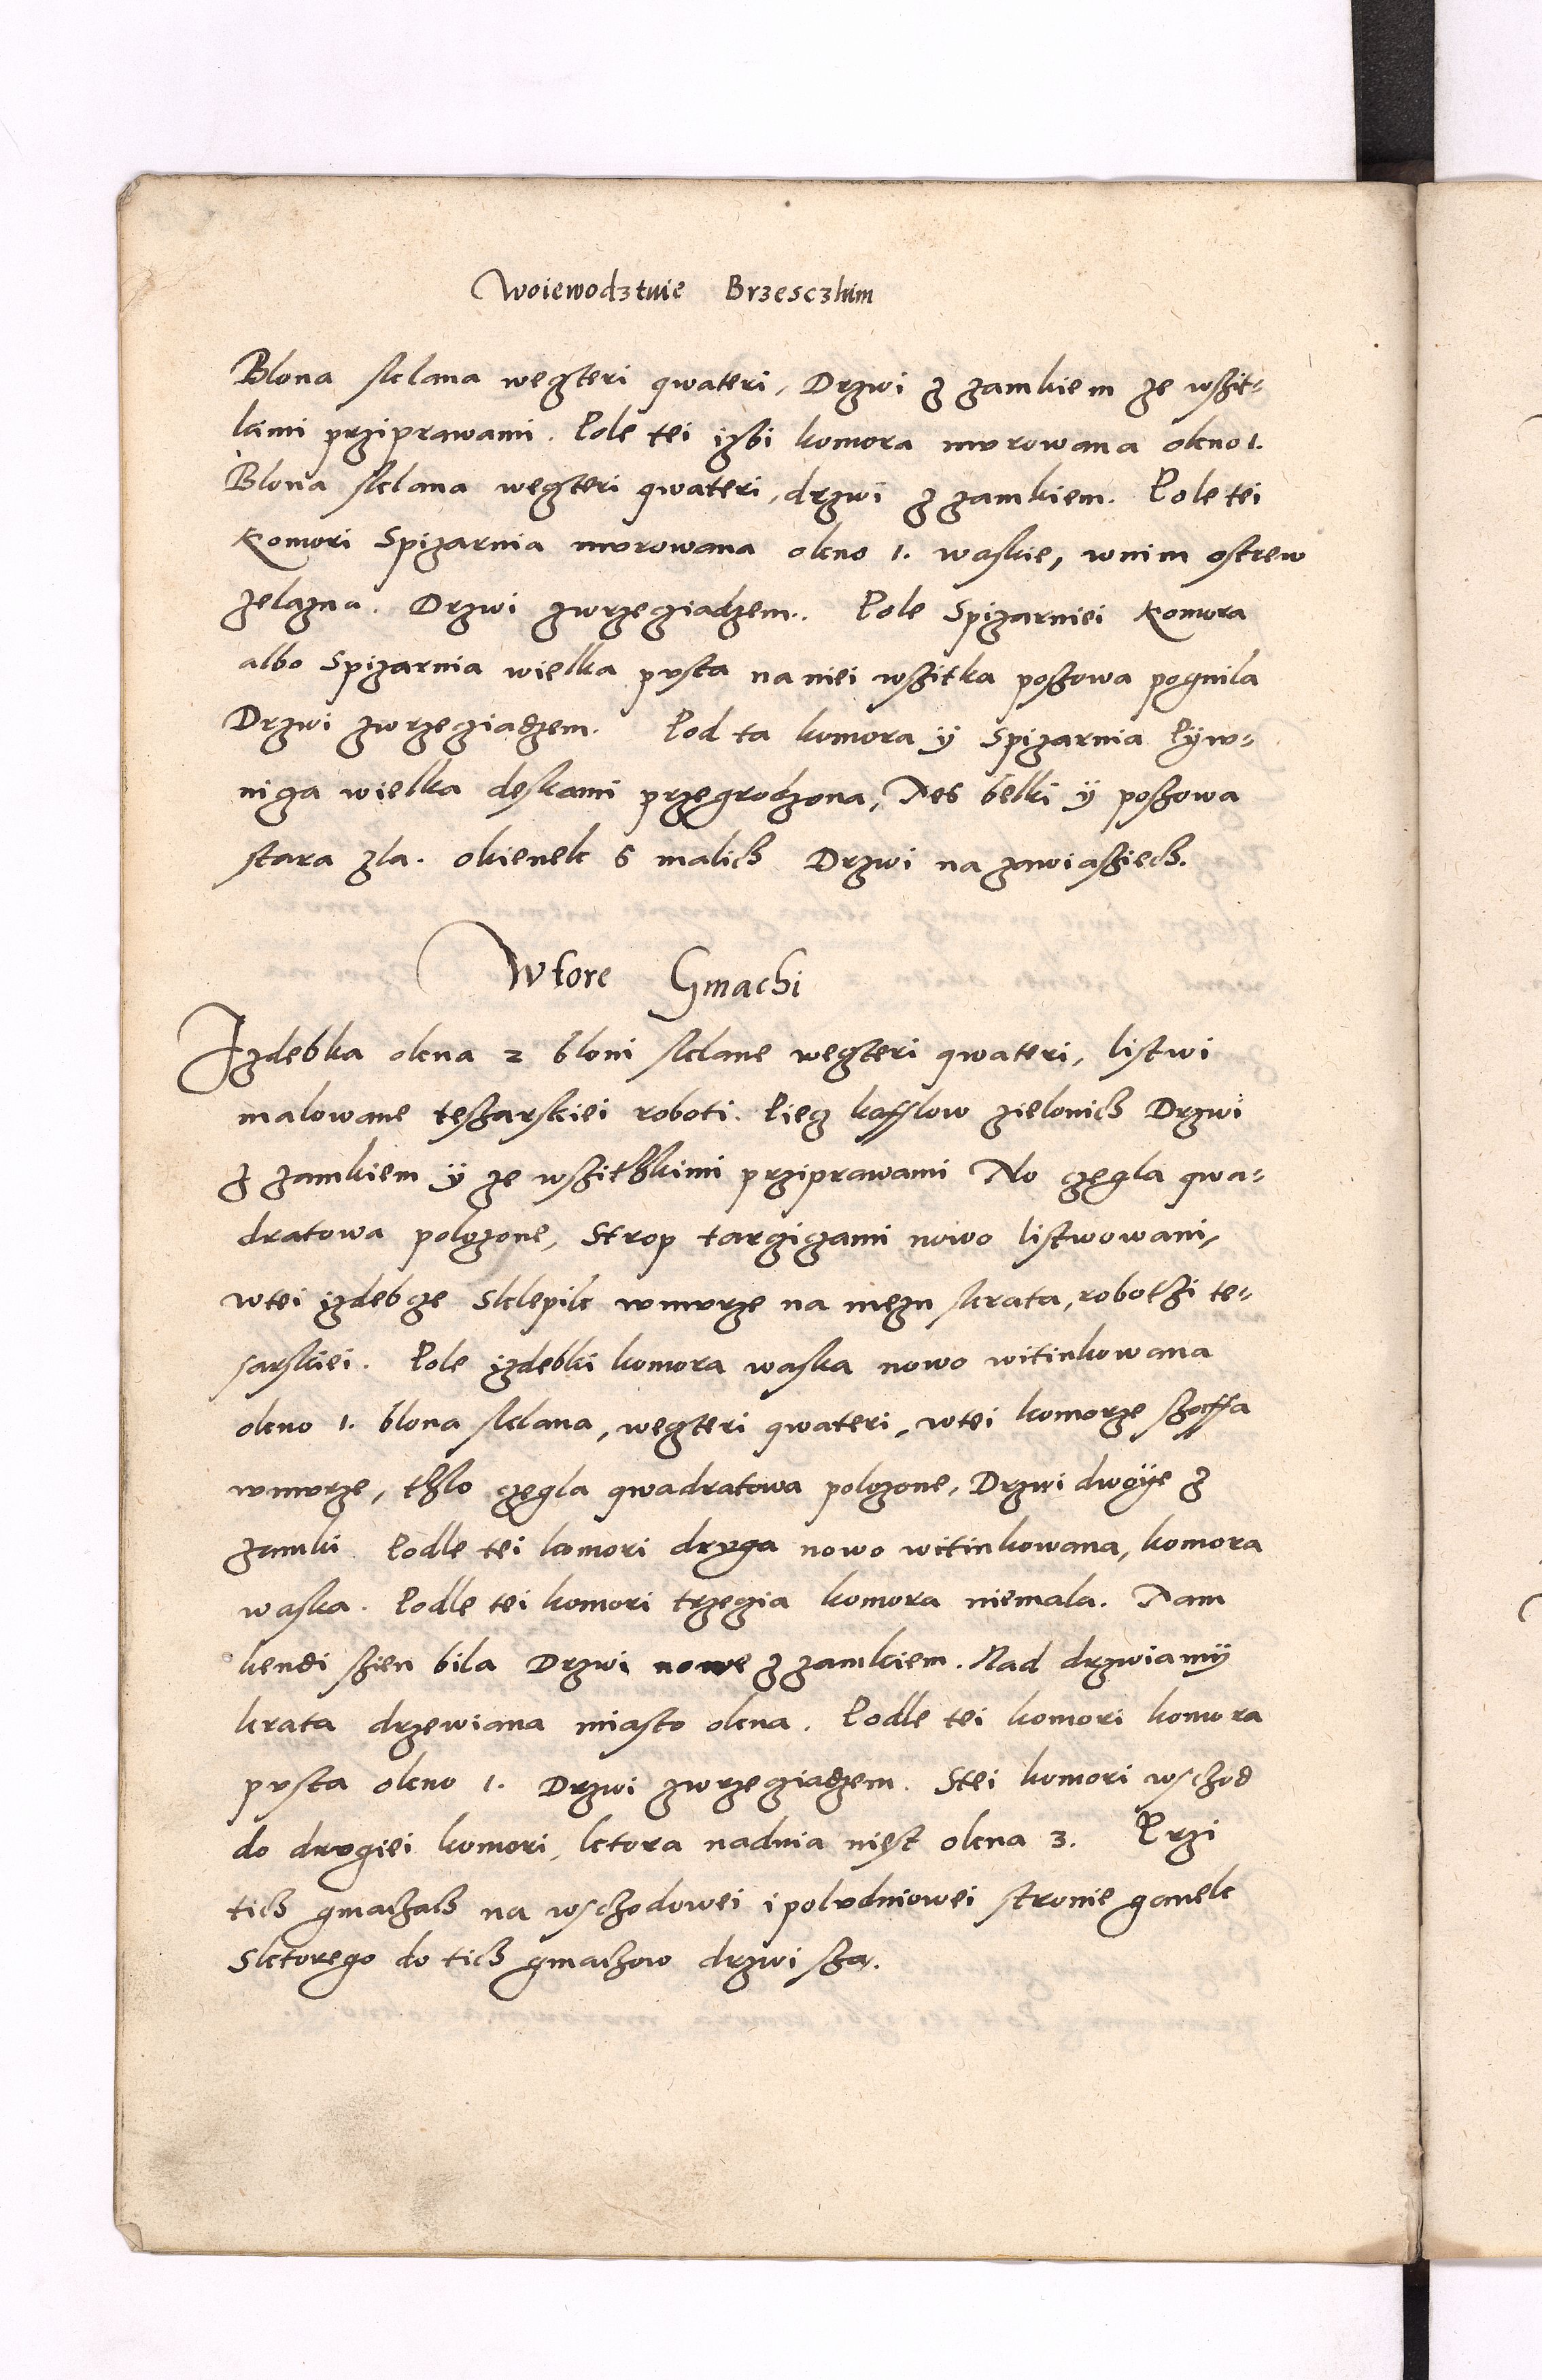 Woiewodztwie Brzesczkim
Blona sklana wczteri qwateri, Drzwi z zamkiem ze wszit-
kimi prziprawami. Pole tei izbi komora mvrowana okno 1.
Blona sklana wczteri qwateri, drzwi z zamkiem. Pole tei
Komori Spizarnia mvrowana okno 1. waskie, wnim ostrew
zelazna. Drzwi zwrzecziadzem. Pole Spizarniei Komora
albo Spizarnia wielka pvsta na niei wszitka poszowa pognila
Drzwi zwrzecziadzem. Pod ta komora y Spizarnia Pyw-
nicza wielka deskami przegrodzona, Tes belki y poszowa
stara zla. okienek 6 malich Drzwi na zawiasziech.
Wtore Gmachi
Izdebka okna 2 bloni sklane wczteri qwateri, listwi
malowane teszarskiei roboti. Piecz kafflow zielonich Drzwi
z zamkiem y ze wszithkimi prziprawami No czegla qwa-
dratowa polozone, Strop tarcziczami nowo listwowani,
wtei izdebcze Sklepik wmvrze na niczu krata, robothi te-
sarskiei. Pole izdebki komora waska nowo witinkowana
okno 1. blona sklana, wczteri qwateri, wtei komorze szaffa
wmvrze, thlo czegla qwadratowa polozone, Drzwi dwoye z
zamki Podle tei komori drvga nowo witinkowana, komora
waska. Podle tei komori trzeczia komora niemala. Tam
kendi szien bila Drzwi nowe z zamkiem. Nad drzwiamy
krata drzewiana miasto okna. Podle tei komori komora
pvsta okno 1. Drzwi zwrzecziadzem. Stei komori wschod
do drvgiei komori, ktora nadnia iest okna 3. Przi
tich gmachach na wschodowei i polvdniowei stronie ganek
Sktorego do tich gmachow drzwi sza.